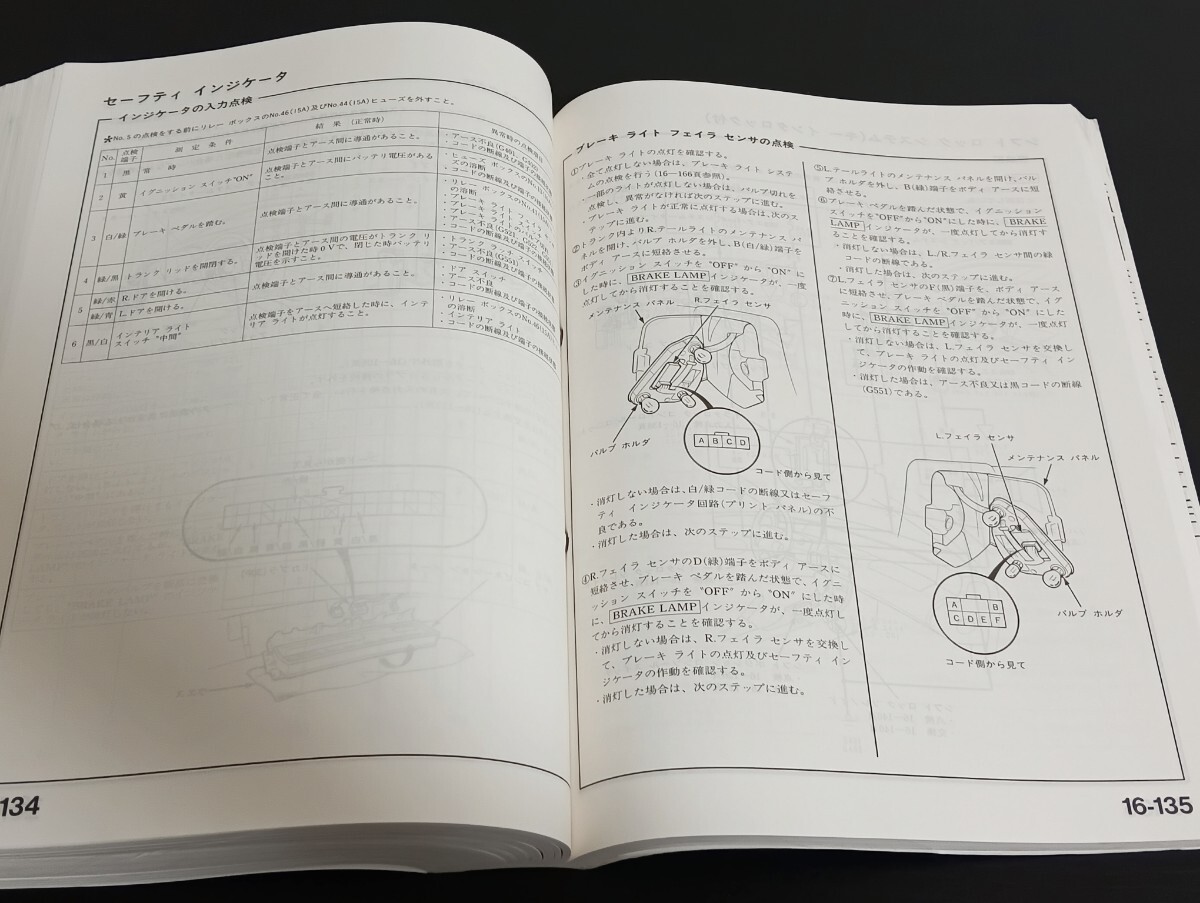 セーフティ インジケータ
インジケータの入力点検
★No.5の点検をする前にリレー ボックスのNo.46(15A)及びNo.44(15A)ヒューズを外すこと。
No. 点検端子 測定条件 結果(正常時) 異常時の点検項目
1 黒 常時 点検端子とアース間に導通があること。 ・アース不良
・コードの断線及び端子の
2 黄 イグニッション スイッチ"ON" 点検端子とアース間にバッテリ電圧があること。 ・ヒューズ ボックスの
ズの溶断
・コードの断線及び端子の
3 白/緑 ブレーキ ペダルを踏む。 点検端子とアース間に導通があること。 ・リレー ボックスの
の溶断
・ブレーキ ライト
・ブレーキ
・ブレーキ
・アース不良(G551)
・コードの断線及び端子の
4 緑/黒 トランク リッドを開閉する。 点検端子とアース間の電圧がトランク リッドを開けた時0Vで、閉じた時バッテリ電圧を示すこと。 ・トランク
・アース不良(G551)
・コードの断線及び端子の
5 緑/赤 R.ドアを開ける。 点検端子とアース間に導通があること。 ・ドア スイッチ
緑/青 L.ドアを開ける。 ・アース不良
・コードの断線及び端子の
6 黒/白 インテリア ライト スイッチ"中間" 点検端子をアースへ短絡した時に、インテリア ライトが点灯すること。 ・リレー ボックスのNo.46(15A)
の溶断
・インテリア ライト
・コードの断線及び端子の
134
ブレーキ ライト フェイラ センサの点検
①ブレーキ ライトの点灯を確認する。
・全て点灯しない場合は、ブレーキ ライト システ
ムの点検を行う(16-166頁参照)。
・一部のライトが点灯しない場合は、バルブ切れを
点検し、異常がなければ次のステップに進む。
・ブレーキ ライトが正常に点灯する場合は、次のス
テップに進む。
②トランク内よりR.テールライトのメンテナンス パ
ネルを開け、バルブ ホルダを外し、B(白/緑)端子を
ボディ アースに短絡させる。
③イグニッション スイッチを"OFF"から"ON"に
した時に、BRAKE LAMPインジケータが、一度
点灯してから消灯することを確認する。
メンテナンス パネル R.フェイラ センサ
バルブ ホルダ
A B C D
コード側から見て
・消灯しない場合は、白/緑コードの断線又はセーフ
ティ インジケータ回路(プリント パネル)の不
良である。
・消灯した場合は、次のステップに進む。
④R.フェイラ センサのD(緑)端子をボディ アースに
短絡させ、ブレーキ ペダルを踏んだ状態で、イグニ
ッション スイッチを"OFF"から"ON"にした時
に、BRAKE LAMPインジケータが、一度点灯し
てから消灯することを確認する。
・消灯しない場合は、R.フェイラ センサを交換し
て、ブレーキ ライトの点灯及びセーフティ イン
ジケータの作動を確認する。
・消灯した場合は、次のステップに進む。
⑤L.テールライトのメンテナンス パネルを開け、バル
ブ ホルダを外し、B(緑)端子をボディ アースに短
絡させる。
⑥ブレーキ ペダルを踏んだ状態で、イグニッション
スイッチを"OFF"から"ON"にした時に、BRAKE
LAMPインジケータが、一度点灯してから消灯す
ることを確認する。
・消灯しない場合は、L./R.フェイラ センサ間の緑
コードの断線である。
・消灯した場合は、次のステップに進む。
⑦L.フェイラ センサのF(黒)端子を、ボディ アース
に短絡させ、ブレーキ ペダルを踏んだ状態で、イグ
ニッション スイッチを"OFF"から"ON"にした
時に、BRAKE LAMPインジケータが、一度点灯
してから消灯することを確認する。
・消灯しない場合は、L.フェイラ センサを交換し
て、ブレーキ ライトの点灯及びセーフティ イン
ジケータの作動を確認する。
・消灯した場合は、アース不良又は黒コードの断線
(G551)である。
L.フェイラ センサ
メンテナンス パネル
A B
C D E F
バルブ ホルダ
コード側から見て
16-135